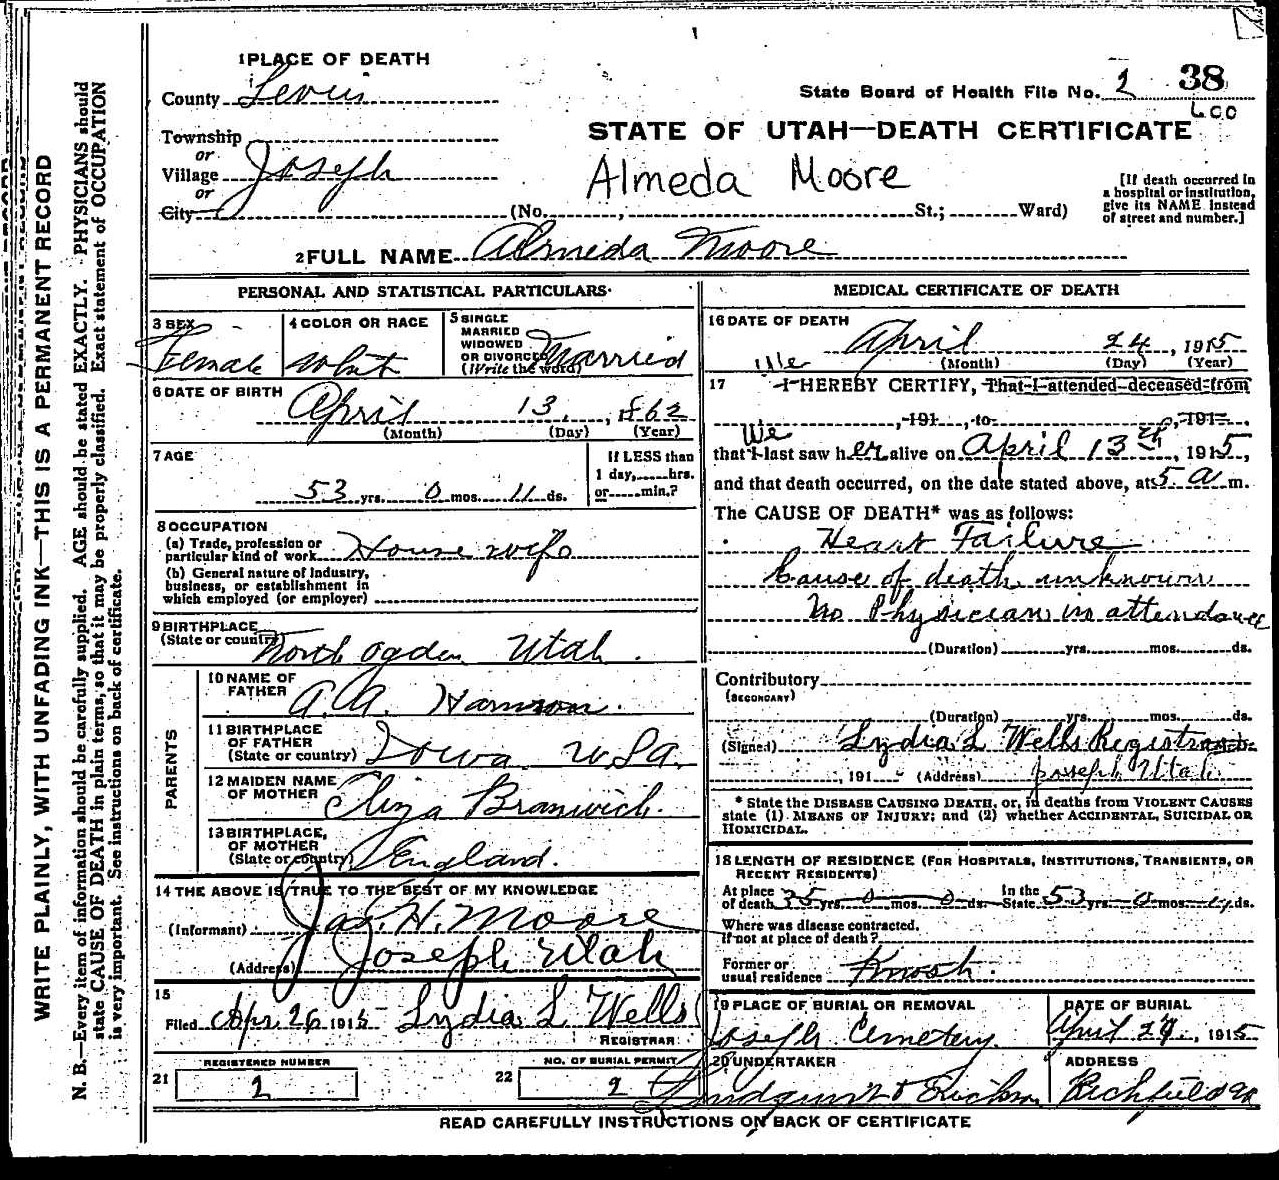 1 PLACE OF DEATH
County Sevier
State Board of Health File No. 2 38
600
Township
or
Village Joseph
or
City
STATE OF UTAH—DEATH CERTIFICATE
Almeda Moore
[If death occurred in a hospital or institution, give its NAME instead of street and number.]
(No. , St.; Ward)
2 FULL NAME Almeda Moore
PERSONAL AND STATISTICAL PARTICULARS
3 SEX
Female
4 COLOR OR RACE
White
5 SINGLE
MARRIED
WIDOWED
OR DIVORCED
(Write the word)
Married
6 DATE OF BIRTH
April 13, 1862
(Month) (Day) (Year)
7 AGE
53 yrs. 0 mos. 11 ds.
If LESS than
1 day, hrs.
or min.?
8 OCCUPATION
(a) Trade, profession or
particular kind of work House wife
(b) General nature of Industry,
business, or establishment in
which employed (or employer)
9 BIRTHPLACE
(State or country) North Ogden Utah.
PARENTS
10 NAME OF
FATHER
11 BIRTHPLACE
OF FATHER
(State or country) Iowa USA.
12 MAIDEN NAME
OF MOTHER Eliza Bramwich.
13 BIRTHPLACE,
OF MOTHER
(State or country) England.
14 THE ABOVE IS TRUE TO THE BEST OF MY KNOWLEDGE
(Informant) Jas. H. Moore
(Address) Joseph Utah
15
Filed Apr. 26 1915 Lydia L Wells
REGISTRAR
REGISTERED NUMBER
21 2
NO. OF BURIAL PERMIT
22 2
MEDICAL CERTIFICATE OF DEATH
16 DATE OF DEATH
April 24, 1915
(Month) (Day) (Year)
We
17 I HEREBY CERTIFY, That I attended deceased from
, 191 , to , 191 ,
We
that I last saw her alive on April 13th, 1915,
and that death occurred, on the date stated above, at 5 a m.
The CAUSE OF DEATH* was as follows:
Heart Failure
Cause of death unknown
No Physician in attendance
(Duration) yrs. mos. ds.
Contributory
(SECONDARY)
(Duration) yrs. mos. ds.
(Signed) Lydia L Wells Registrar
, 191 (Address) Joseph Utah.
* State the DISEASE CAUSING DEATH, or, in deaths from VIOLENT CAUSES
state (1) MEANS OF INJURY; and (2) whether ACCIDENTAL, SUICIDAL OR
HOMICIDAL.
18 LENGTH OF RESIDENCE (FOR HOSPITALS, INSTITUTIONS, TRANSIENTS, OR
RECENT RESIDENTS)
At place
of death 35 yrs. 0 mos. 0 ds. In the State 53 yrs. 0 mos. 11 ds.
Where was disease contracted,
if not at place of death?
Former or
usual residence Knosh.
19 PLACE OF BURIAL OR REMOVAL
Joseph Cemetery.
DATE OF BURIAL
April 27, 1915
20 UNDERTAKER
ADDRESS
Richfield
READ CAREFULLY INSTRUCTIONS ON BACK OF CERTIFICATE
WRITE PLAINLY, WITH UNFADING INK—THIS IS A PERMANENT RECORD
N. B.—Every item of information should be carefully supplied. AGE should be stated EXACTLY. PHYSICIANS should
state CAUSE OF DEATH in plain terms, so that it may be properly classified. Exact statement of OCCUPATION
is very important. See instructions on back of certificate.